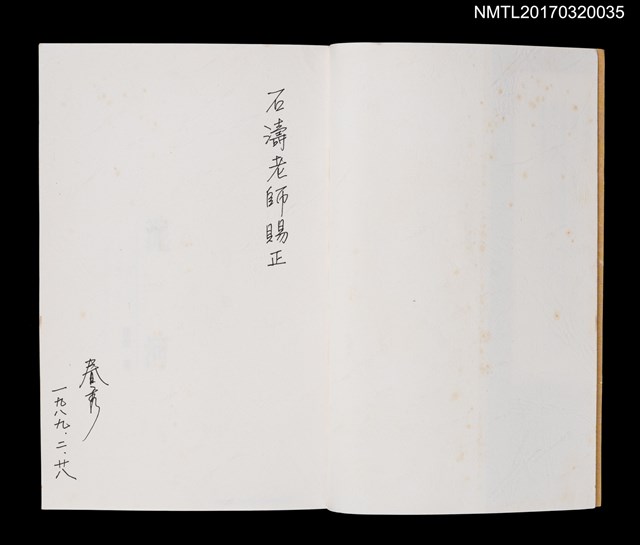 NMTL20170320035
石濤老師賜正
春秀
一九八九.二.廿八